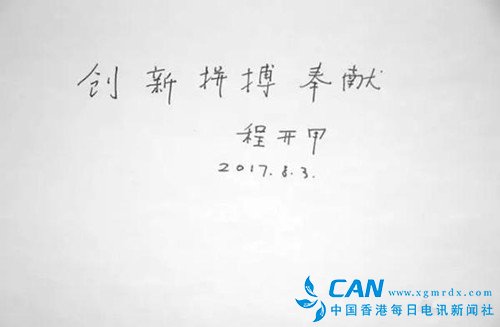 创新拼搏奉献
程开甲
2017.8.3.
CAN
www.xgmrdx.com
中国香港每日电讯新闻社